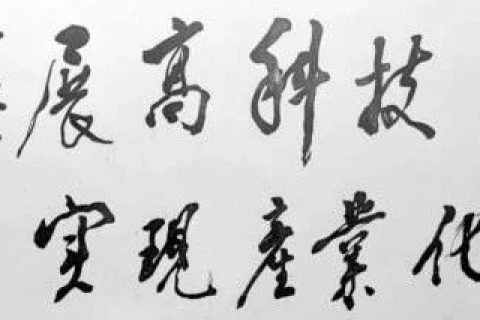 展高科技
实現產業化